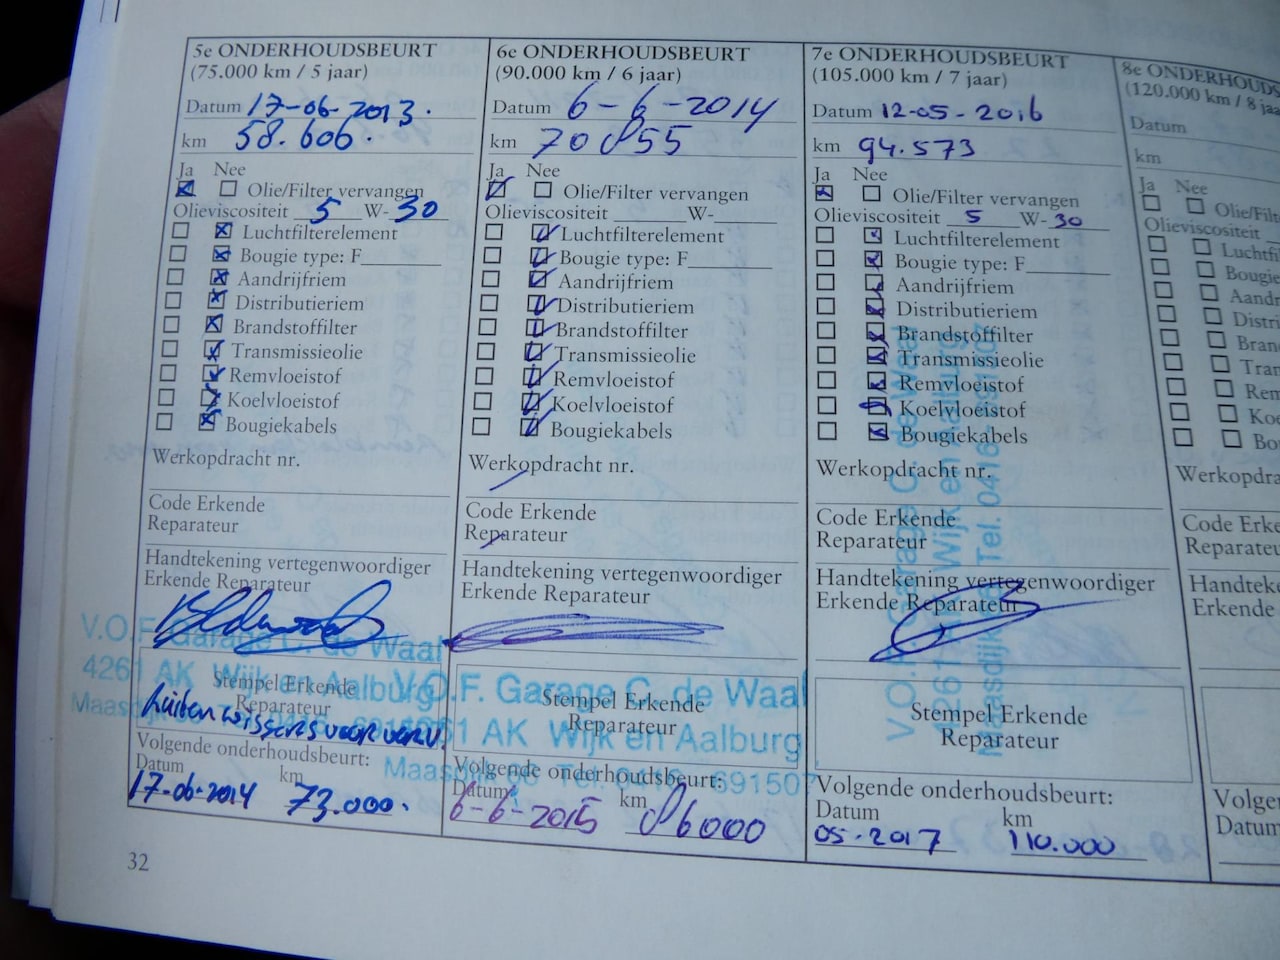 5e ONDERHOUDSBEURT
(75.000 km / 5 jaar)
Datum 17-06-2013.
km 58.606.
Ja Nee
Olie/Filter vervangen
Olieviscositeit 5 W- 30
Luchtfilterelement
Bougie type: F
Aandrijfriem
Distributieriem
Brandstoffilter
Transmissieolie
Remvloeistof
Koelvloeistof
Bougiekabels
Werkopdracht nr.
Code Erkende
Reparateur
Handtekening vertegenwoordiger
Erkende Reparateur
V.O.F. Garage C. de Waal
4261 AK Wijk en Aalburg
Stempel Erkende
Reparateur
ruitenwissers voor verv.
Volgende onderhoudsbeurt:
Datum km
17-06-2014 73.000.
32
6e ONDERHOUDSBEURT
(90.000 km / 6 jaar)
Datum 6-6-2014
km 70855
Ja Nee
Olie/Filter vervangen
Olieviscositeit W-
Luchtfilterelement
Bougie type: F
Aandrijfriem
Distributieriem
Brandstoffilter
Transmissieolie
Remvloeistof
Koelvloeistof
Bougiekabels
Werkopdracht nr.
Code Erkende
Reparateur
Handtekening vertegenwoordiger
Erkende Reparateur
V.O.F. Garage C. de Waal
Stempel Erkende
Reparateur
4261 AK Wijk en Aalburg
Maasdijk Tel. 0416 - 691507
Volgende onderhoudsbeurt:
Datum km
6-6-2015 86000
7e ONDERHOUDSBEURT
(105.000 km / 7 jaar)
Datum 12-05-2016
km 94.573
Ja Nee
Olie/Filter vervangen
Olieviscositeit 5 W- 30
Luchtfilterelement
Bougie type: F
Aandrijfriem
Distributieriem
Brandstoffilter
Transmissieolie
Remvloeistof
Koelvloeistof
Bougiekabels
Werkopdracht nr.
Code Erkende
Reparateur
Handtekening vertegenwoordiger
Erkende Reparateur
V.O.F. Garage C. de Waal
4261 AK Wijk en Aalburg
Maasdijk Tel. 0416
Stempel Erkende
Reparateur
Volgende onderhoudsbeurt:
Datum km
05-2017 110.000
8e ONDERHOUDS
(120.000 km / 8 jaa
Datum
km
Ja Nee
Olie/Filt
Olieviscositeit
Luchtf
Bougie
Aandr
Distri
Bran
Tran
Rem
Koe
Bo
Werkopdra
Code Erke
Reparateur
Handteke
Erkende
Volgen
Datum